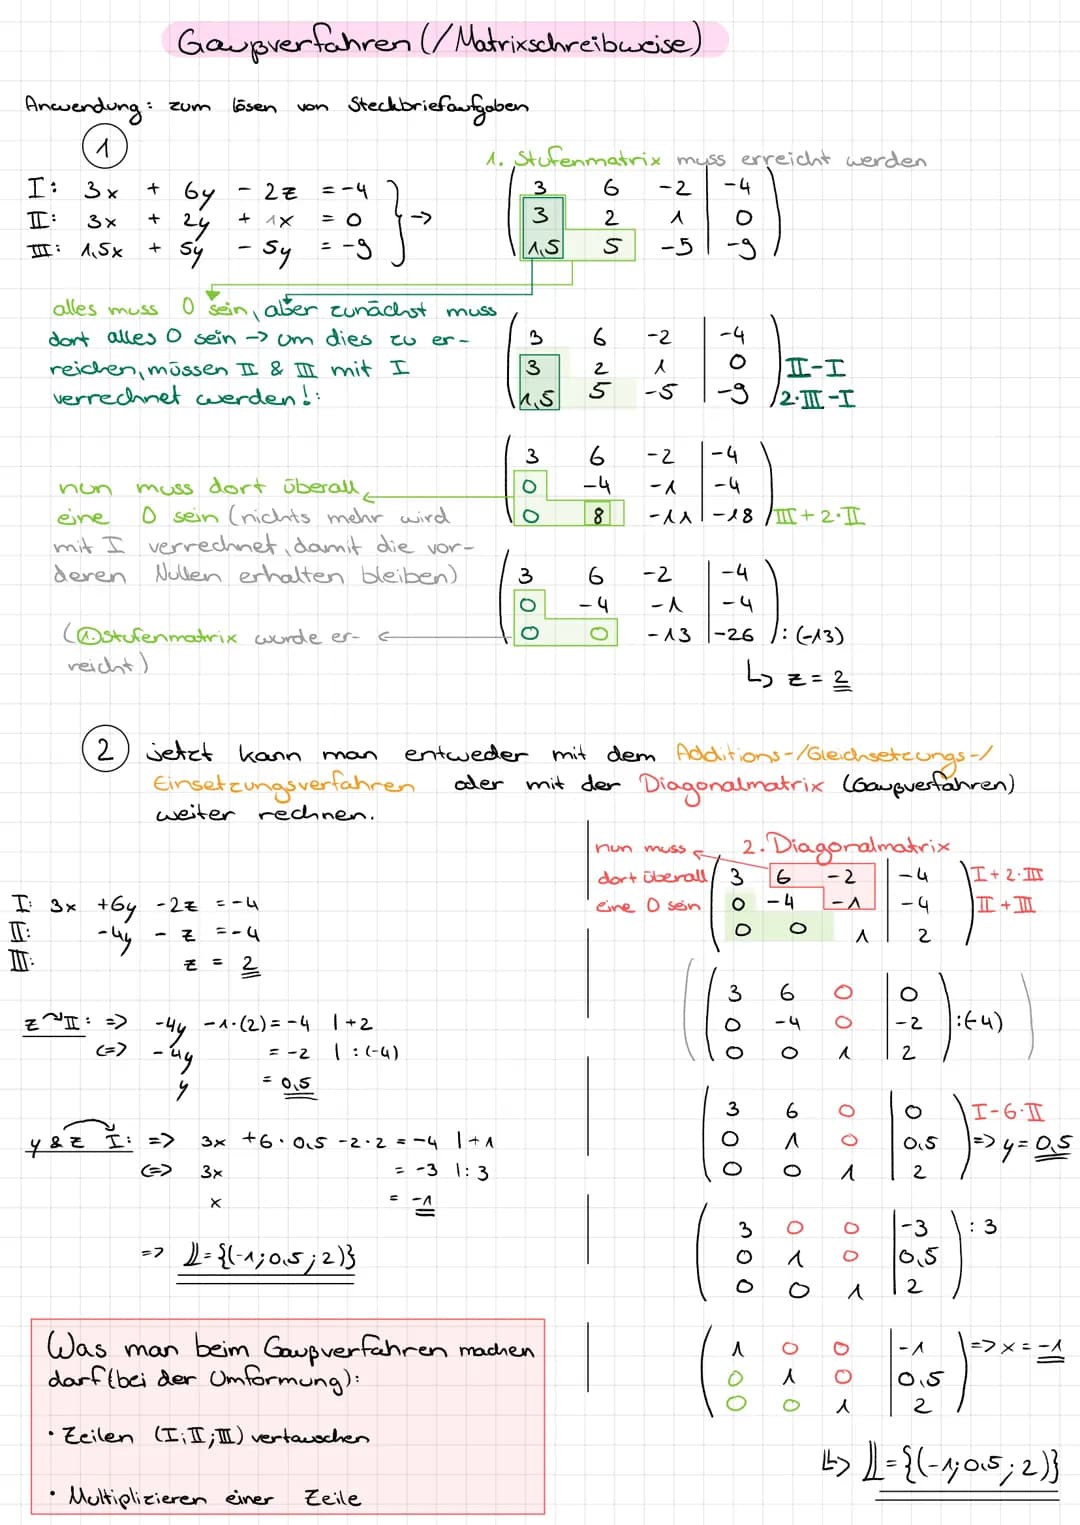 Gaußverfahren (/Matrixschreibweise)
Anwendung: zum lösen von Steckbriefaufgaben
1
1. Stufenmatrix muss erreicht werden
I: 3x + 6y - 2z = -4
II: 3x + 2y + 1x = 0
III: 1,5x + 5y - 5y = -9
→
3 6 -2 | -4
3 2 1 | 0
1,5 5 -5 | -9
alles muss 0 sein, aber zunächst muss
dort alles 0 sein → um dies zu er-
reichen, müssen II & III mit I
verrechnet werden!:
3 6 -2 | -4
3 2 1 | 0 II-I
1,5 5 -5 | -9 2·III-I
nun muss dort überall
eine 0 sein (nichts mehr wird
mit I verrechnet, damit die vor-
deren Nullen erhalten bleiben)
3 6 -2 | -4
0 -4 -1 | -4
0 8 -11 | -18 III+2·II
(1. Stufenmatrix wurde er-
reicht)
3 6 -2 | -4
0 -4 -1 | -4
0 0 -13 | -26 :(-13)
↳ z = 2
2 jetzt kann man entweder mit dem Additions-/Gleichsetzungs-/
Einsetzungsverfahren oder mit der Diagonalmatrix (Gaußverfahren)
weiter rechnen.
I: 3x +6y -2z = -4
II: -4y - z = -4
III: z = 2
z↷II: => -4y -1·(2) = -4 |+2
<=> -4y = -2 |:(-4)
y = 0,5
y & z I: => 3x +6·0,5 -2·2 = -4 |+1
<=> 3x = -3 |:3
x = -1
=> 𝕃={(-1;0,5;2)}
Was man beim Gaußverfahren machen
darf (bei der Umformung):
· Zeilen (I;II;III) vertauschen
· Multiplizieren einer Zeile
nun muss
dort überall
eine 0 sein
2. Diagonalmatrix
3 6 -2 | -4 I+2·III
0 -4 -1 | -4 II+III
0 0 1 | 2
3 6 0 | 0
0 -4 0 | -2 :(-4)
0 0 1 | 2
3 6 0 | 0 I-6·II
0 1 0 | 0,5 => y = 0,5
0 0 1 | 2
3 0 0 | -3 :3
0 1 0 | 0,5
0 0 1 | 2
1 0 0 | -1 => x = -1
0 1 0 | 0,5
0 0 1 | 2
↳ 𝕃={(-1;0,5;2)}